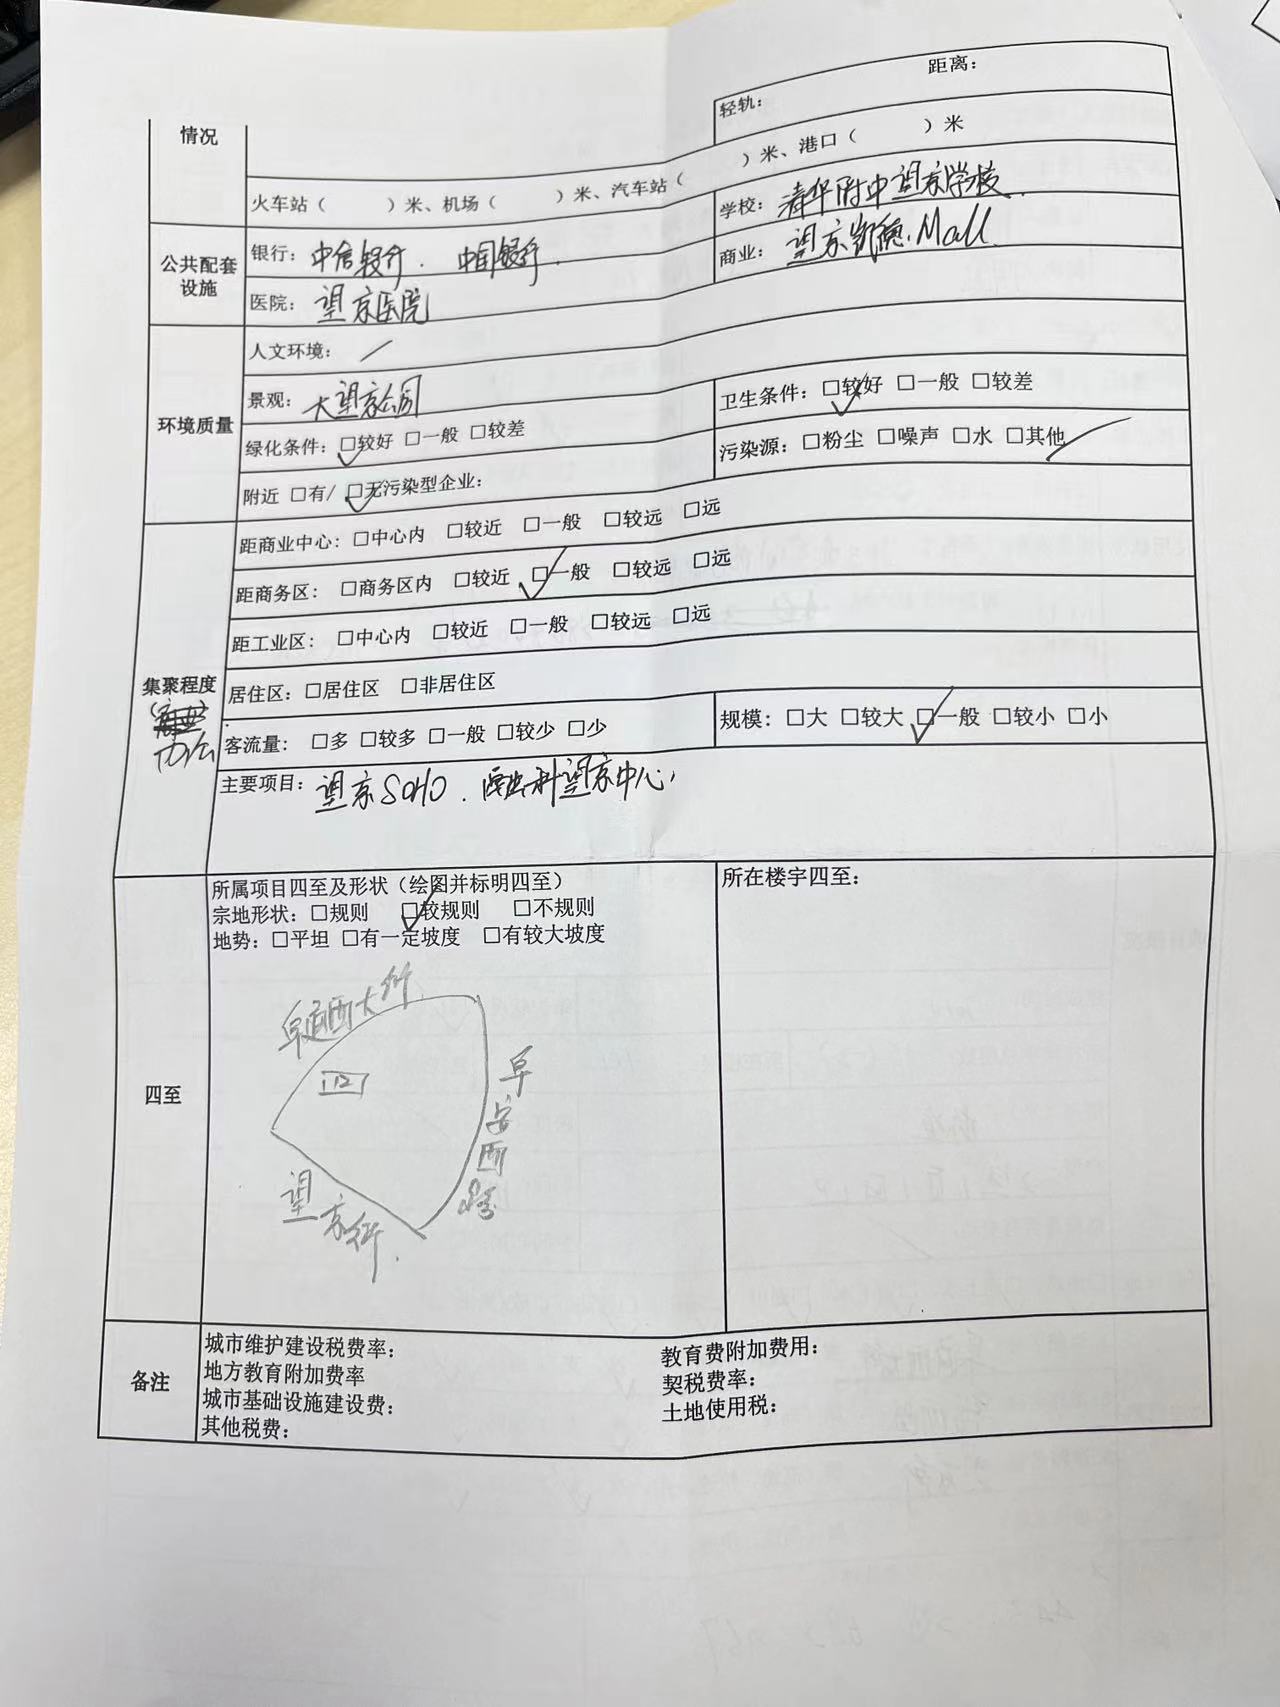 距离：
情况
轻轨：
火车站（ ）米、机场（ ）米、汽车站（ ）米、港口（ ）米
公共配套设施
银行：中信银行．中国银行．
学校：清华附中望京学校．
医院：望京医院
商业：望京凯德．Mall
环境质量
人文环境：／
景观：大望京公园
卫生条件：☑较好 □一般 □较差
绿化条件：☑较好 □一般 □较差
污染源：□粉尘 □噪声 □水 □其他／
附近 □有/ ☑无污染型企业：
集聚程度
办公
距商业中心：□中心内 □较近 □一般 □较远 □远
距商务区：□商务区内 □较近 ☑一般 □较远 □远
距工业区：□中心内 □较近 □一般 □较远 □远
居住区：□居住区 □非居住区
客流量：□多 □较多 □一般 □较少 □少
规模：□大 □较大 ☑一般 □较小 □小
主要项目：望京SOHO．融科望京中心，
四至
所属项目四至及形状（绘图并标明四至）
宗地形状：□规则 ☑较规则 □不规则
地势：□平坦 □有一定坡度 □有较大坡度
阜通西大街
阜安西路
望京街．
所在楼宇四至：
备注
城市维护建设税费率：
地方教育附加费率
城市基础设施建设费：
其他税费：
教育费附加费用：
契税费率：
土地使用税：